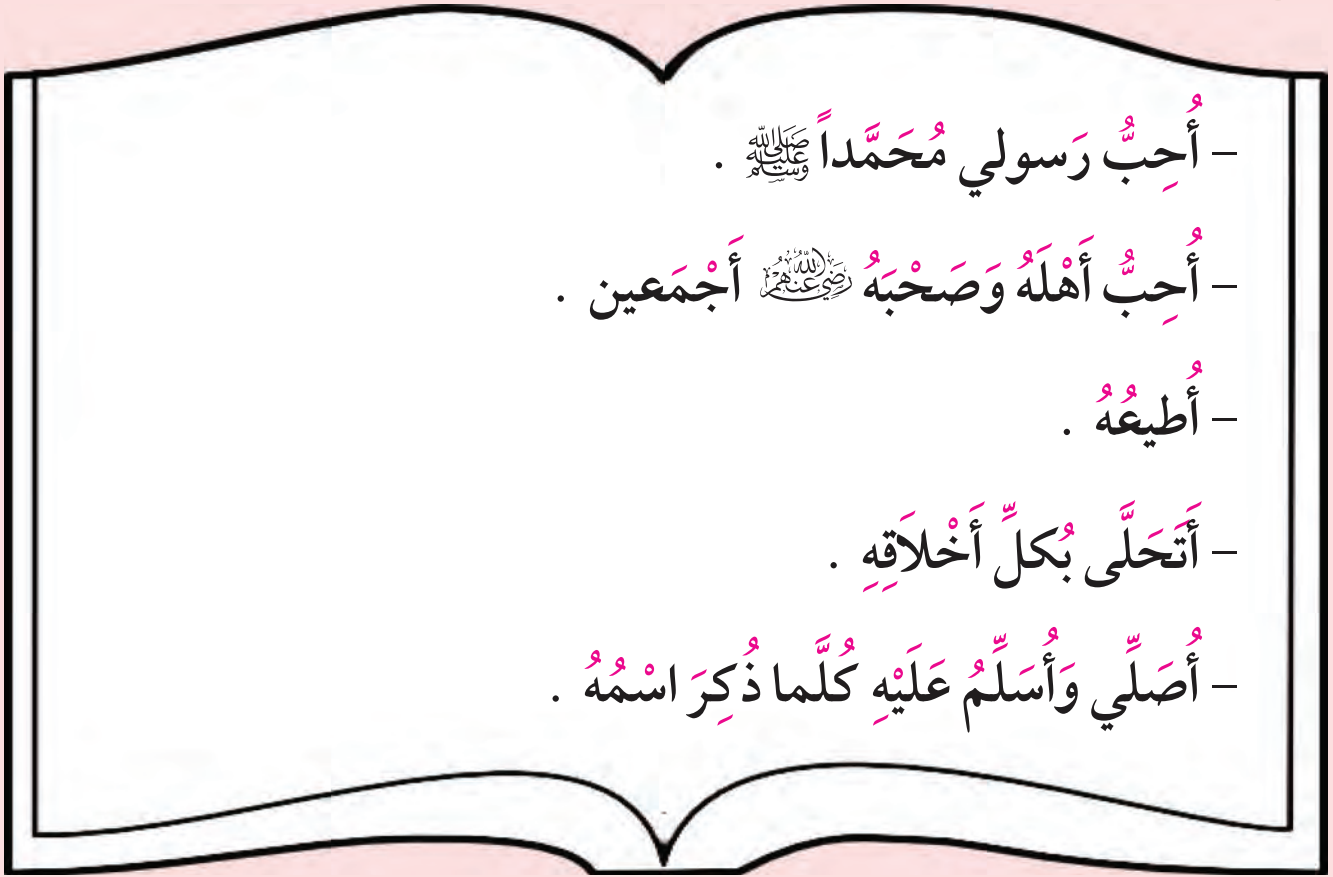 – أُحِبُّ رَسولي مُحَمَّداً ﷺ .
– أُحِبُّ أَهْلَهُ وَصَحْبَهُ رَضِيَ اللهُ عَنْهُمْ أَجْمَعين .
– أُطيعُهُ .
– أَتَحَلَّى بُكلِّ أَخْلاَقِهِ .
– أُصَلِّي وَأُسَلِّمُ عَلَيْهِ كُلَّما ذُكِرَ اسْمُهُ .